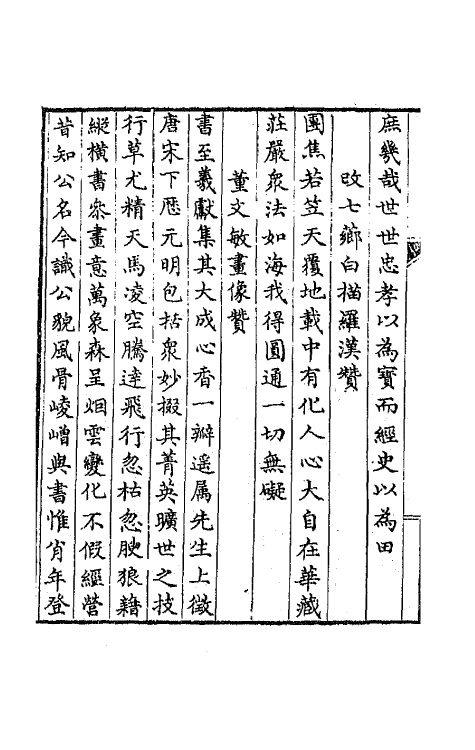 庶幾哉世世忠孝以為寶而經史以為田
改七薌白描羅漢贊
團焦若笠天覆地載中有化人心大自在華藏
莊嚴衆法如海我得圓通一切無礙
董文敏畫像贊
書至羲獻集其大成心香一瓣遥属先生上徵
唐宋下厯元明包括衆妙掇其菁英曠世之技
行草尤精天馬凌空騰逹飛行忽枯忽腴狼藉
縱横書叅畫意萬象森呈烟雲變化不假經營
昔知公名今識公貌風骨崚嶒與書惟肖年登